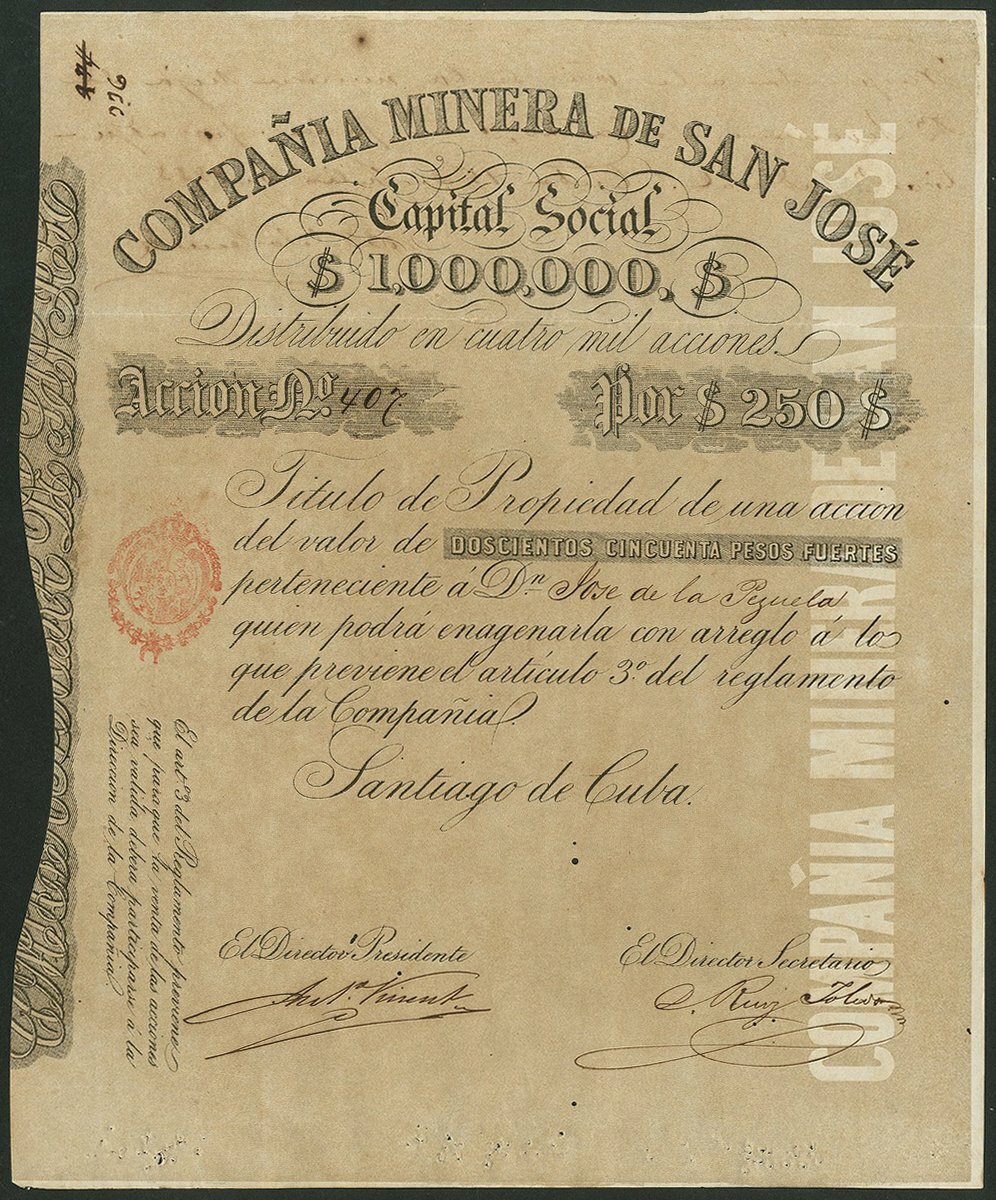 COMPAÑIA MINERA DE SAN JOSÉ
Capital Social
$ 1,000,000, $
Distribuido en cuatro mil acciones.
Accion No. 407
Por $ 250 $
Titulo de Propiedad de una accion
del valor de DOSCIENTOS CINCUENTA PESOS FUERTES
perteneciente á Dn. Jose de la Pezuela
quien podrá enagenarla con arreglo á lo
que previene el artículo 3º. del reglamento
de la Compañia.
Santiago de Cuba.
El Director Presidente
El Director Secretario
Anto. Vinent
Ruiz Toledo
El artº. 3 del Reglamento previene
que para que la venta de las acciones
sea valida deberá participarse á la
Direccion de la Compañia.
COMPAÑIA MINERA DE SAN JOSÉ